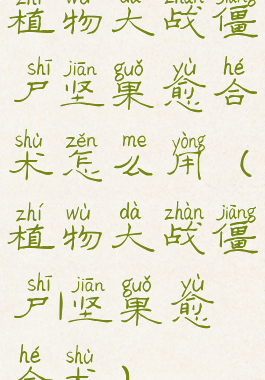 zhí wù dà zhàn jiāng
植物大战僵
shī jiān guǒ yù hé
尸坚果愈合
shù zěn me yòng
术怎么用（
zhí wù dà zhàn jiāng
植物大战僵
shī jiān guǒ yù
尸|坚果愈
hé shù
合术）